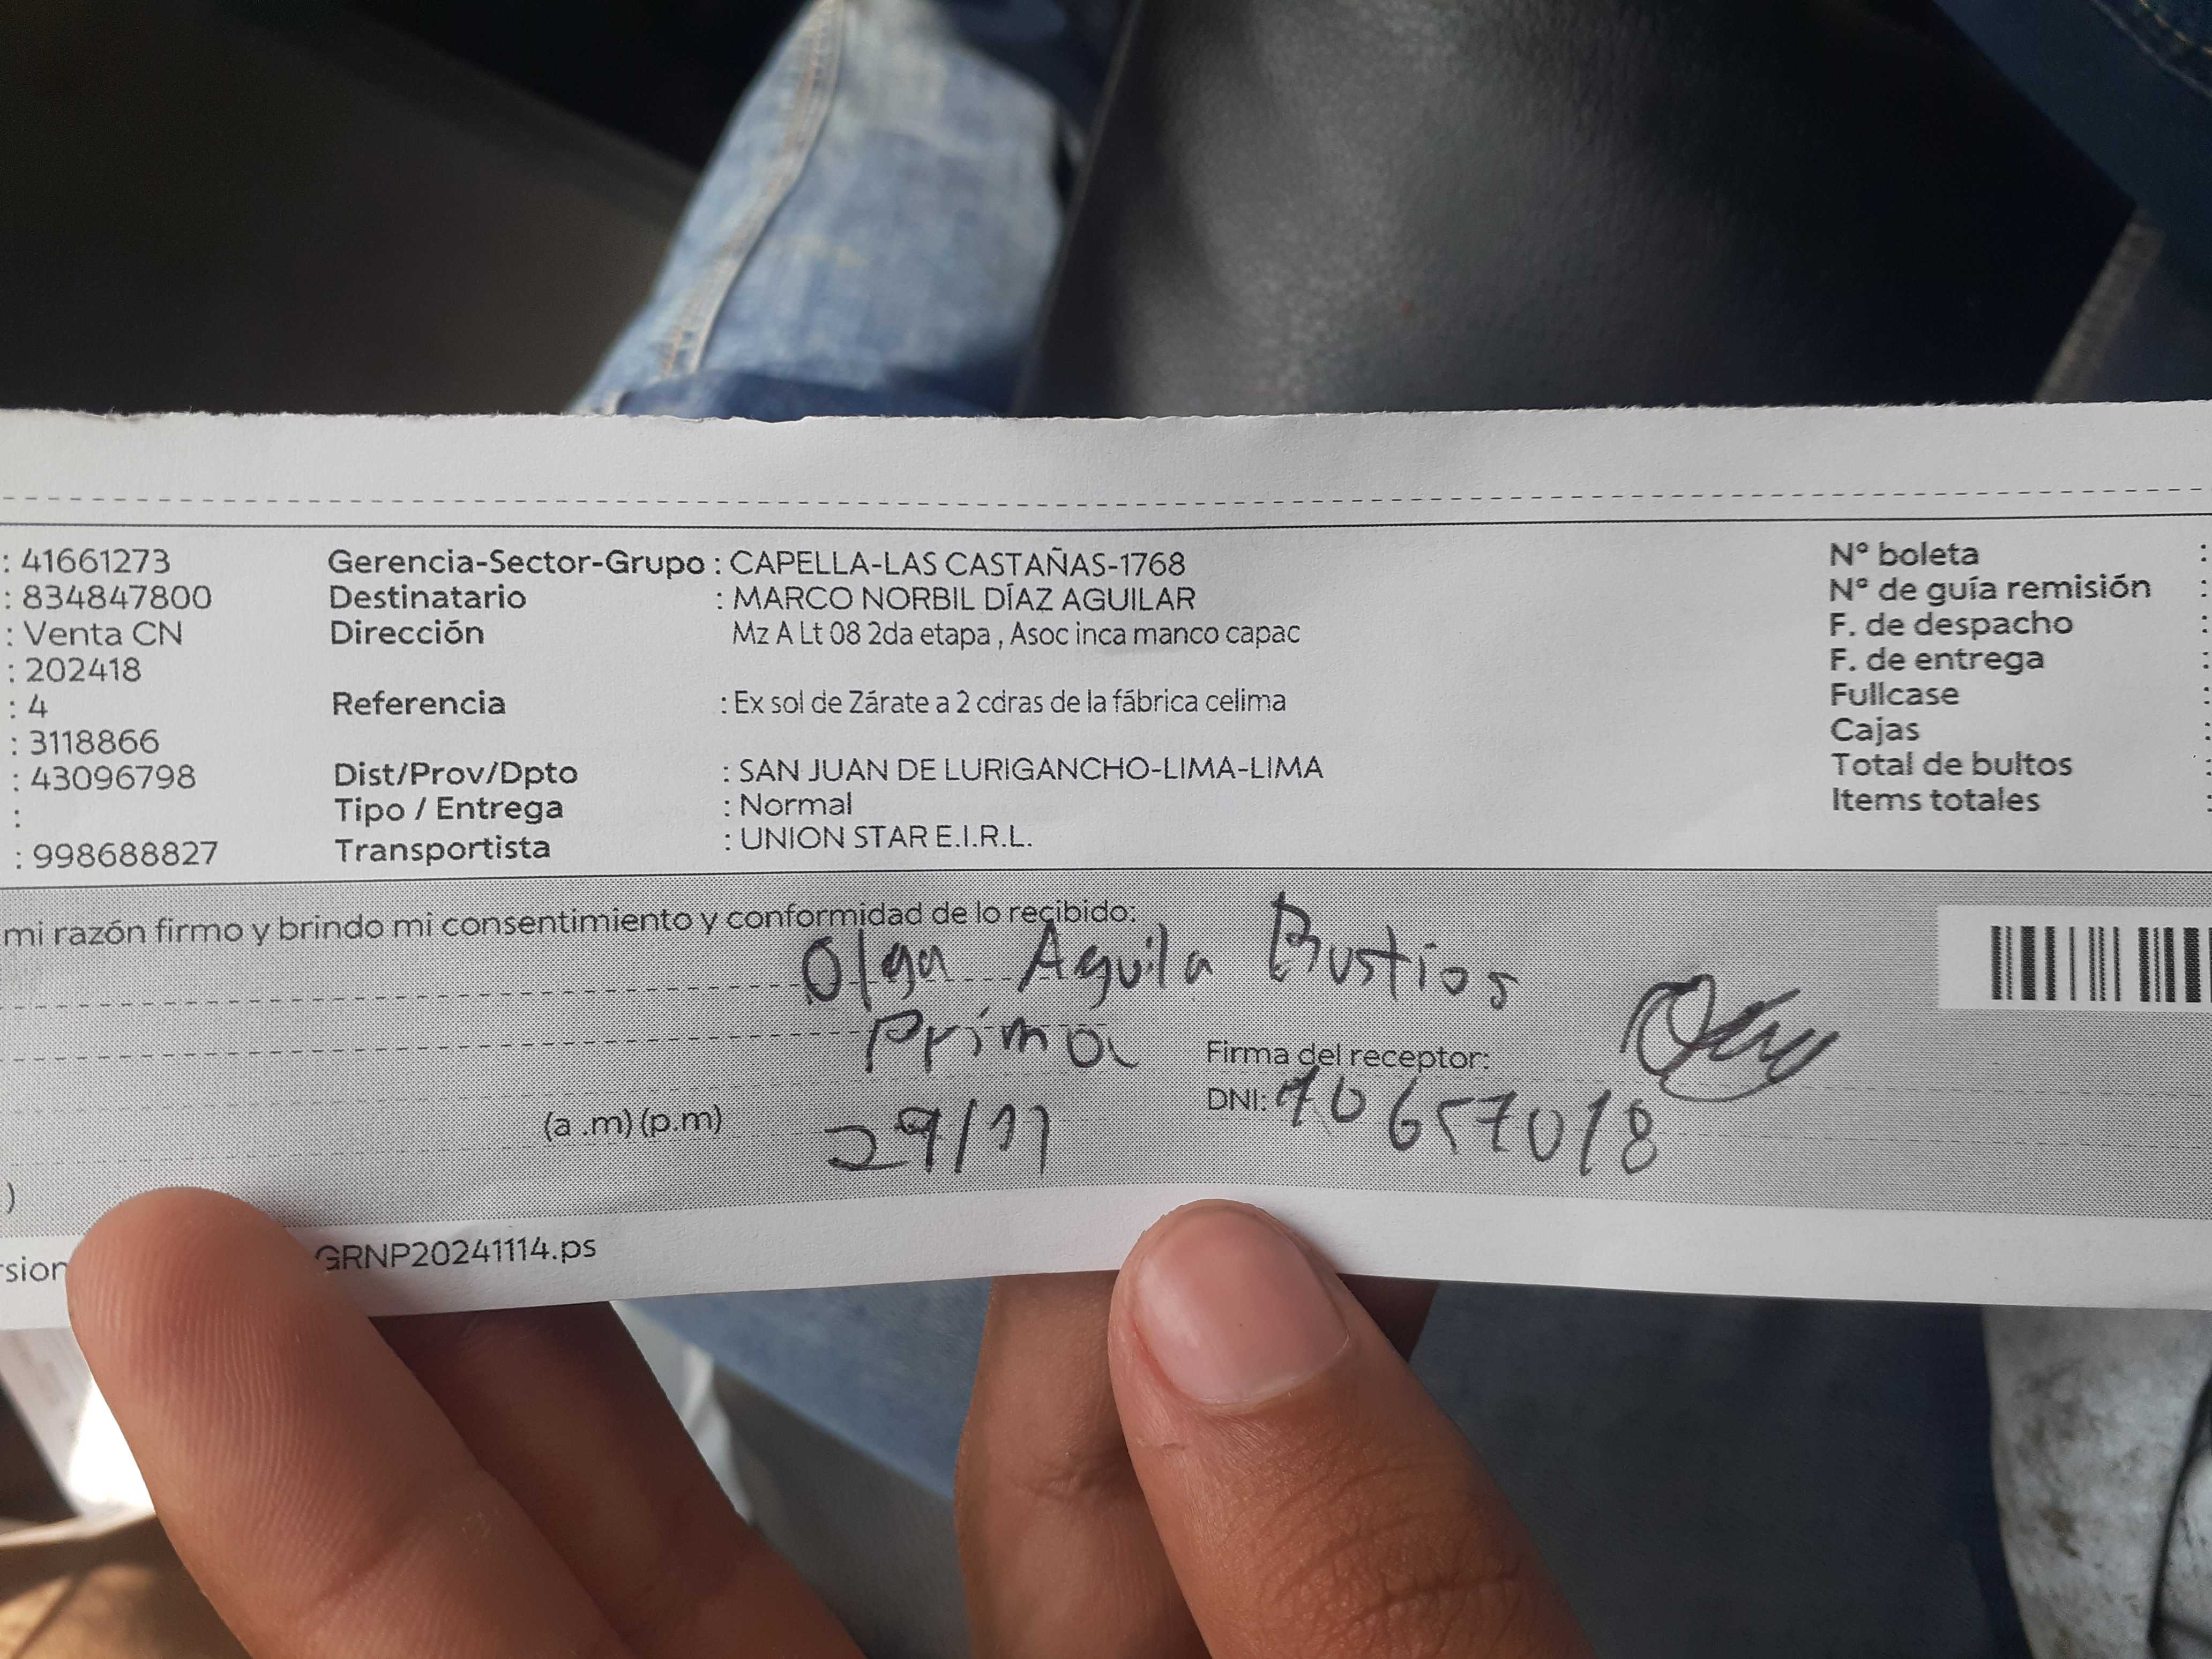 : 41661273 Gerencia-Sector-Grupo : CAPELLA-LAS CASTAÑAS-1768 Nº boleta :
: 834847800 Destinatario : MARCO NORBIL DÍAZ AGUILAR Nº de guía remisión :
: Venta CN Dirección Mz A Lt 08 2da etapa , Asoc inca manco capac F. de despacho :
: 202418 F. de entrega :
: 4 Referencia : Ex sol de Zárate a 2 cdras de la fábrica celima Fullcase :
: 3118866 Cajas :
: 43096798 Dist/Prov/Dpto : SAN JUAN DE LURIGANCHO-LIMA-LIMA Total de bultos :
: Tipo / Entrega : Normal Items totales :
: 998688827 Transportista : UNION STAR E.I.R.L.
mi razón firmo y brindo mi consentimiento y conformidad de lo recibido:
Olga Aguila Bustios
Prima
Firma del receptor:
(a .m) (p.m) 29/11 DNI: 70657018
)
GRNP20241114.ps